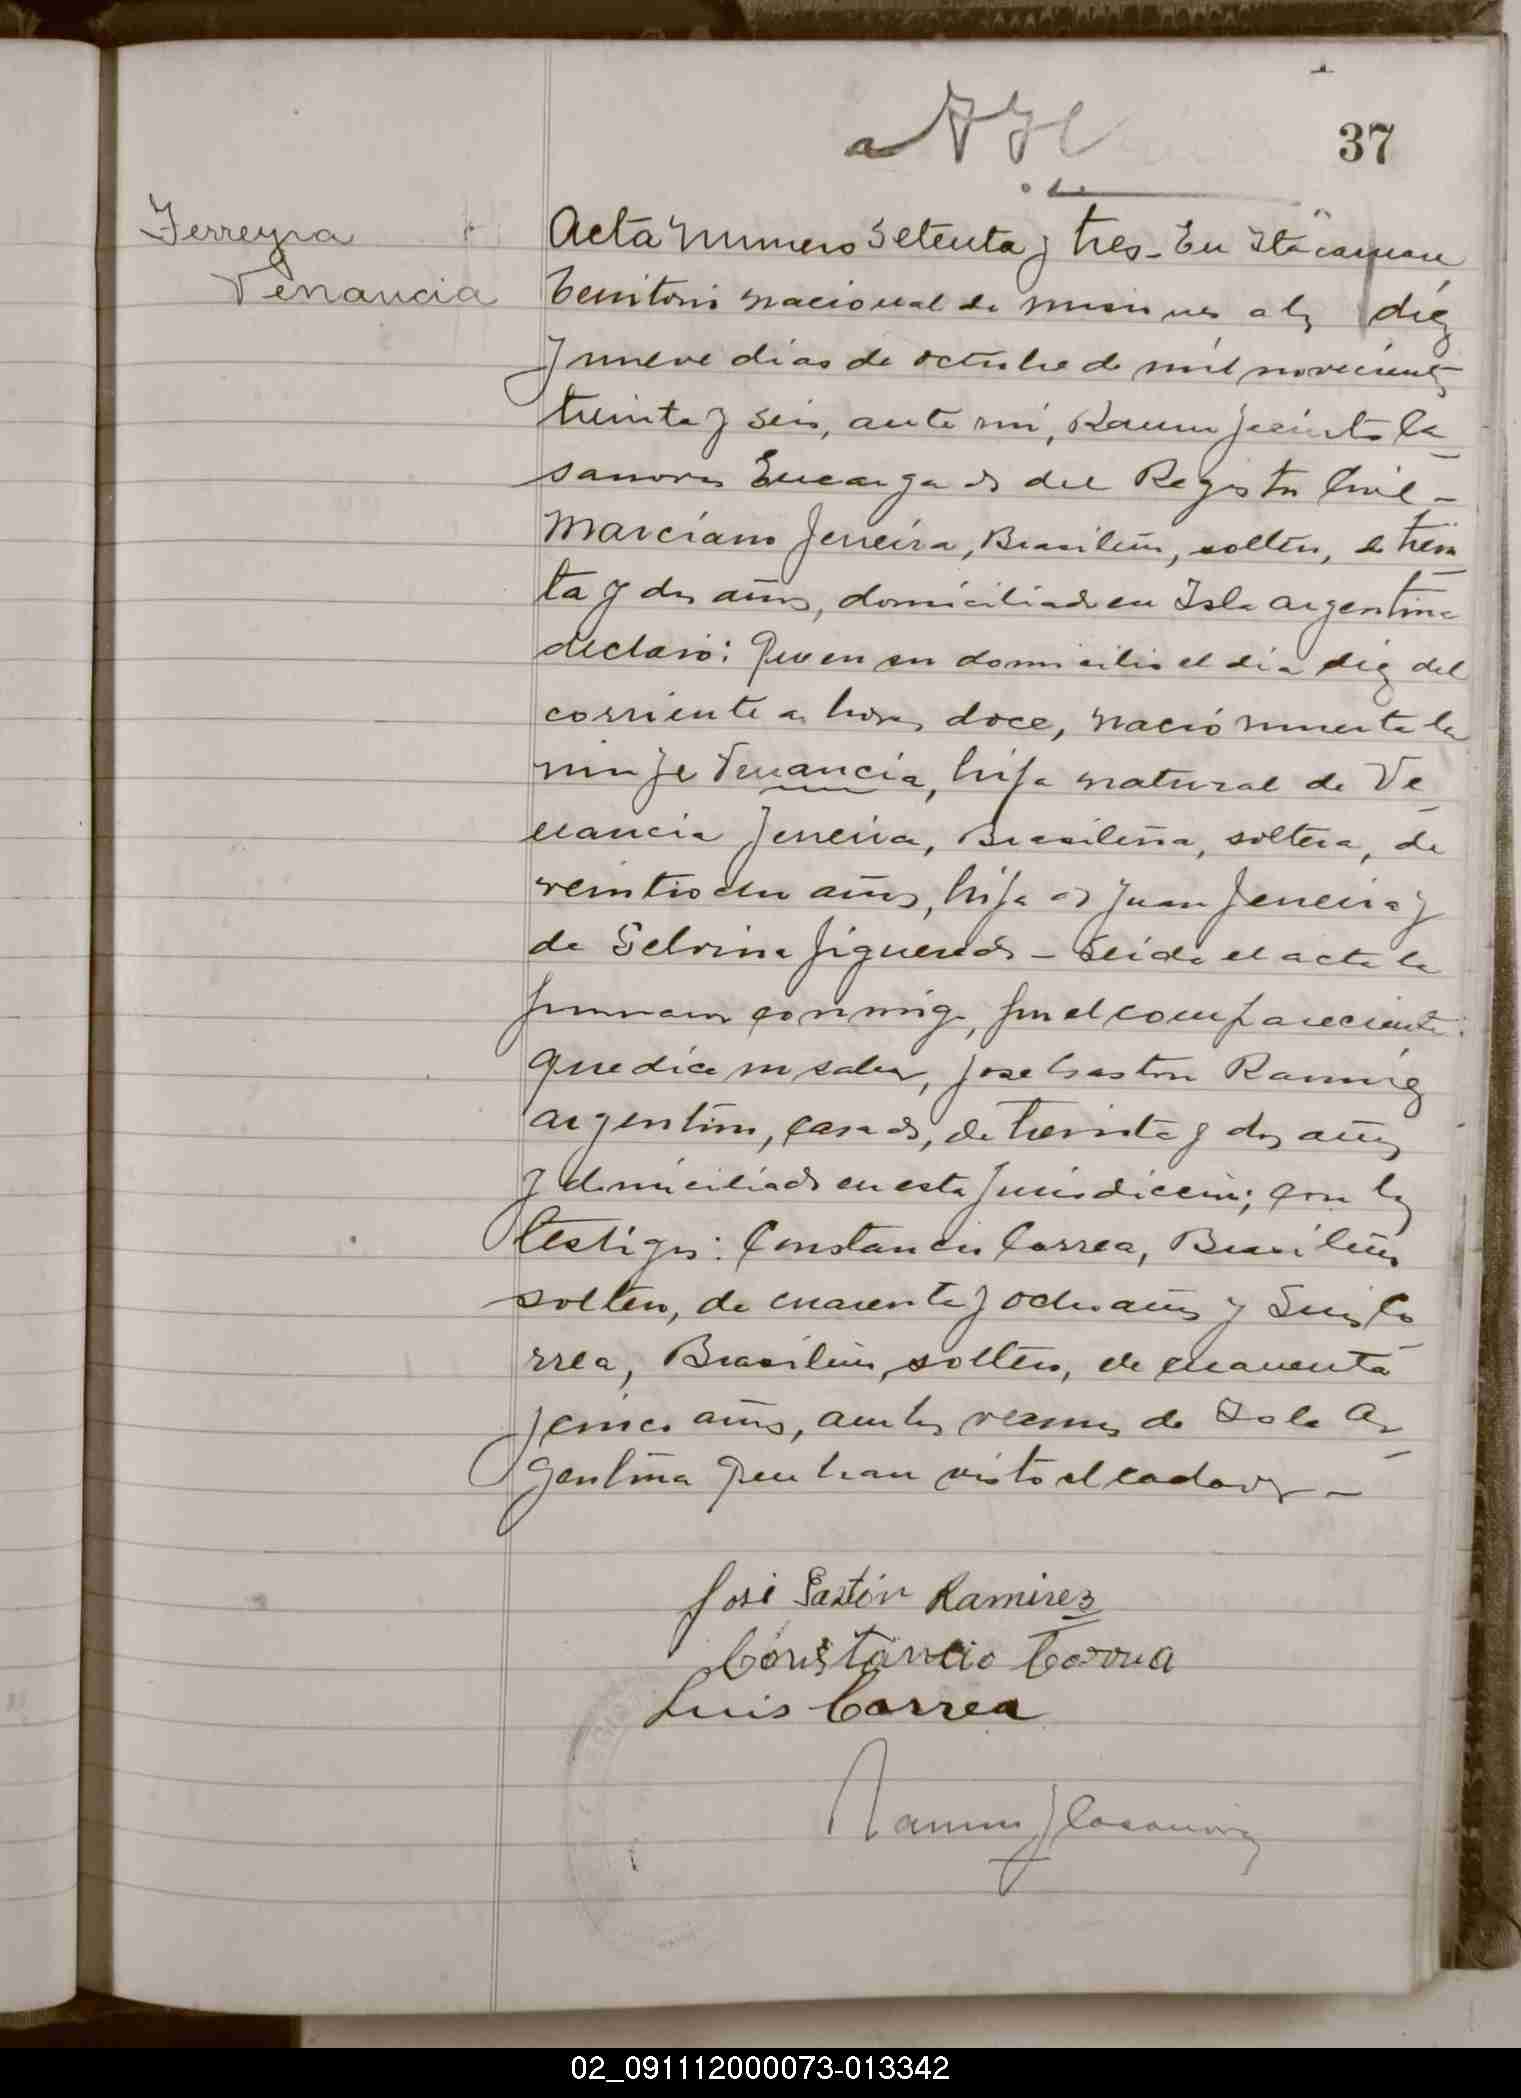 37
Ferreyra
Venancia
Acta numero Setenta y tres - En Itacaruaré
territorio nacional de misiones a los diez
y nueve dias de octubre de mil novecientos
treinta y seis, ante mi, Ramon Jacinto Ca-
sanova Encargado del Registro Civil -
Marciano Ferreira, Brasileño, soltero, de trein
ta y dos años, domiciliado en Isla argentina
declaró: Que en su domicilio el dia diez del
corriente a horas doce, nació muerta la
Venancia, hija natural de Ve-
nancia Ferreira, Brasileña, soltera, de
veintiocho años, hija de Juan Ferreira y
de Selvina Figueredo - Leida el acta la
firmaron conmigo, por el compareciente
que dice no saber, Jose Gaston Ramirez
argentino, casado, de treinta y dos años
y domiciliado en esta jurisdiccion; con los
testigos: Constancio Correa, Brasileño
soltero, de cuarenta y ocho años y Luis Co-
rrea, Brasileño, soltero, de cuarenta
y cinco años, ambos vecinos de Isla Ar-
gentina que han visto el cadaver -
José Gastón Ramirez
Constancio Correa
Luis Correa
Ramon J Casanova
02_091112000073-013342